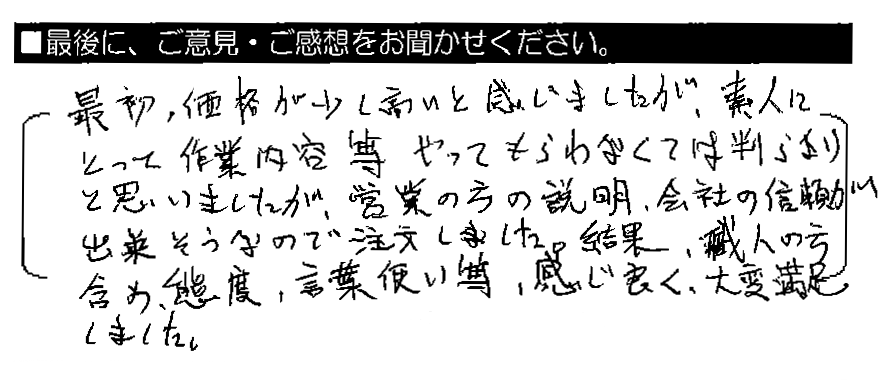 ■最後に、ご意見・ご感想をお聞かせください。
最初、価格が少し高いと感じましたが、素人に
とって作業内容等やってもらわなくては判らない
と思いましたが、営業の方の説明、会社の信頼が
出来そうなので注文しました。結果、職人の方
含め、態度、言葉使い等、感じ良く、大変満足
しました。